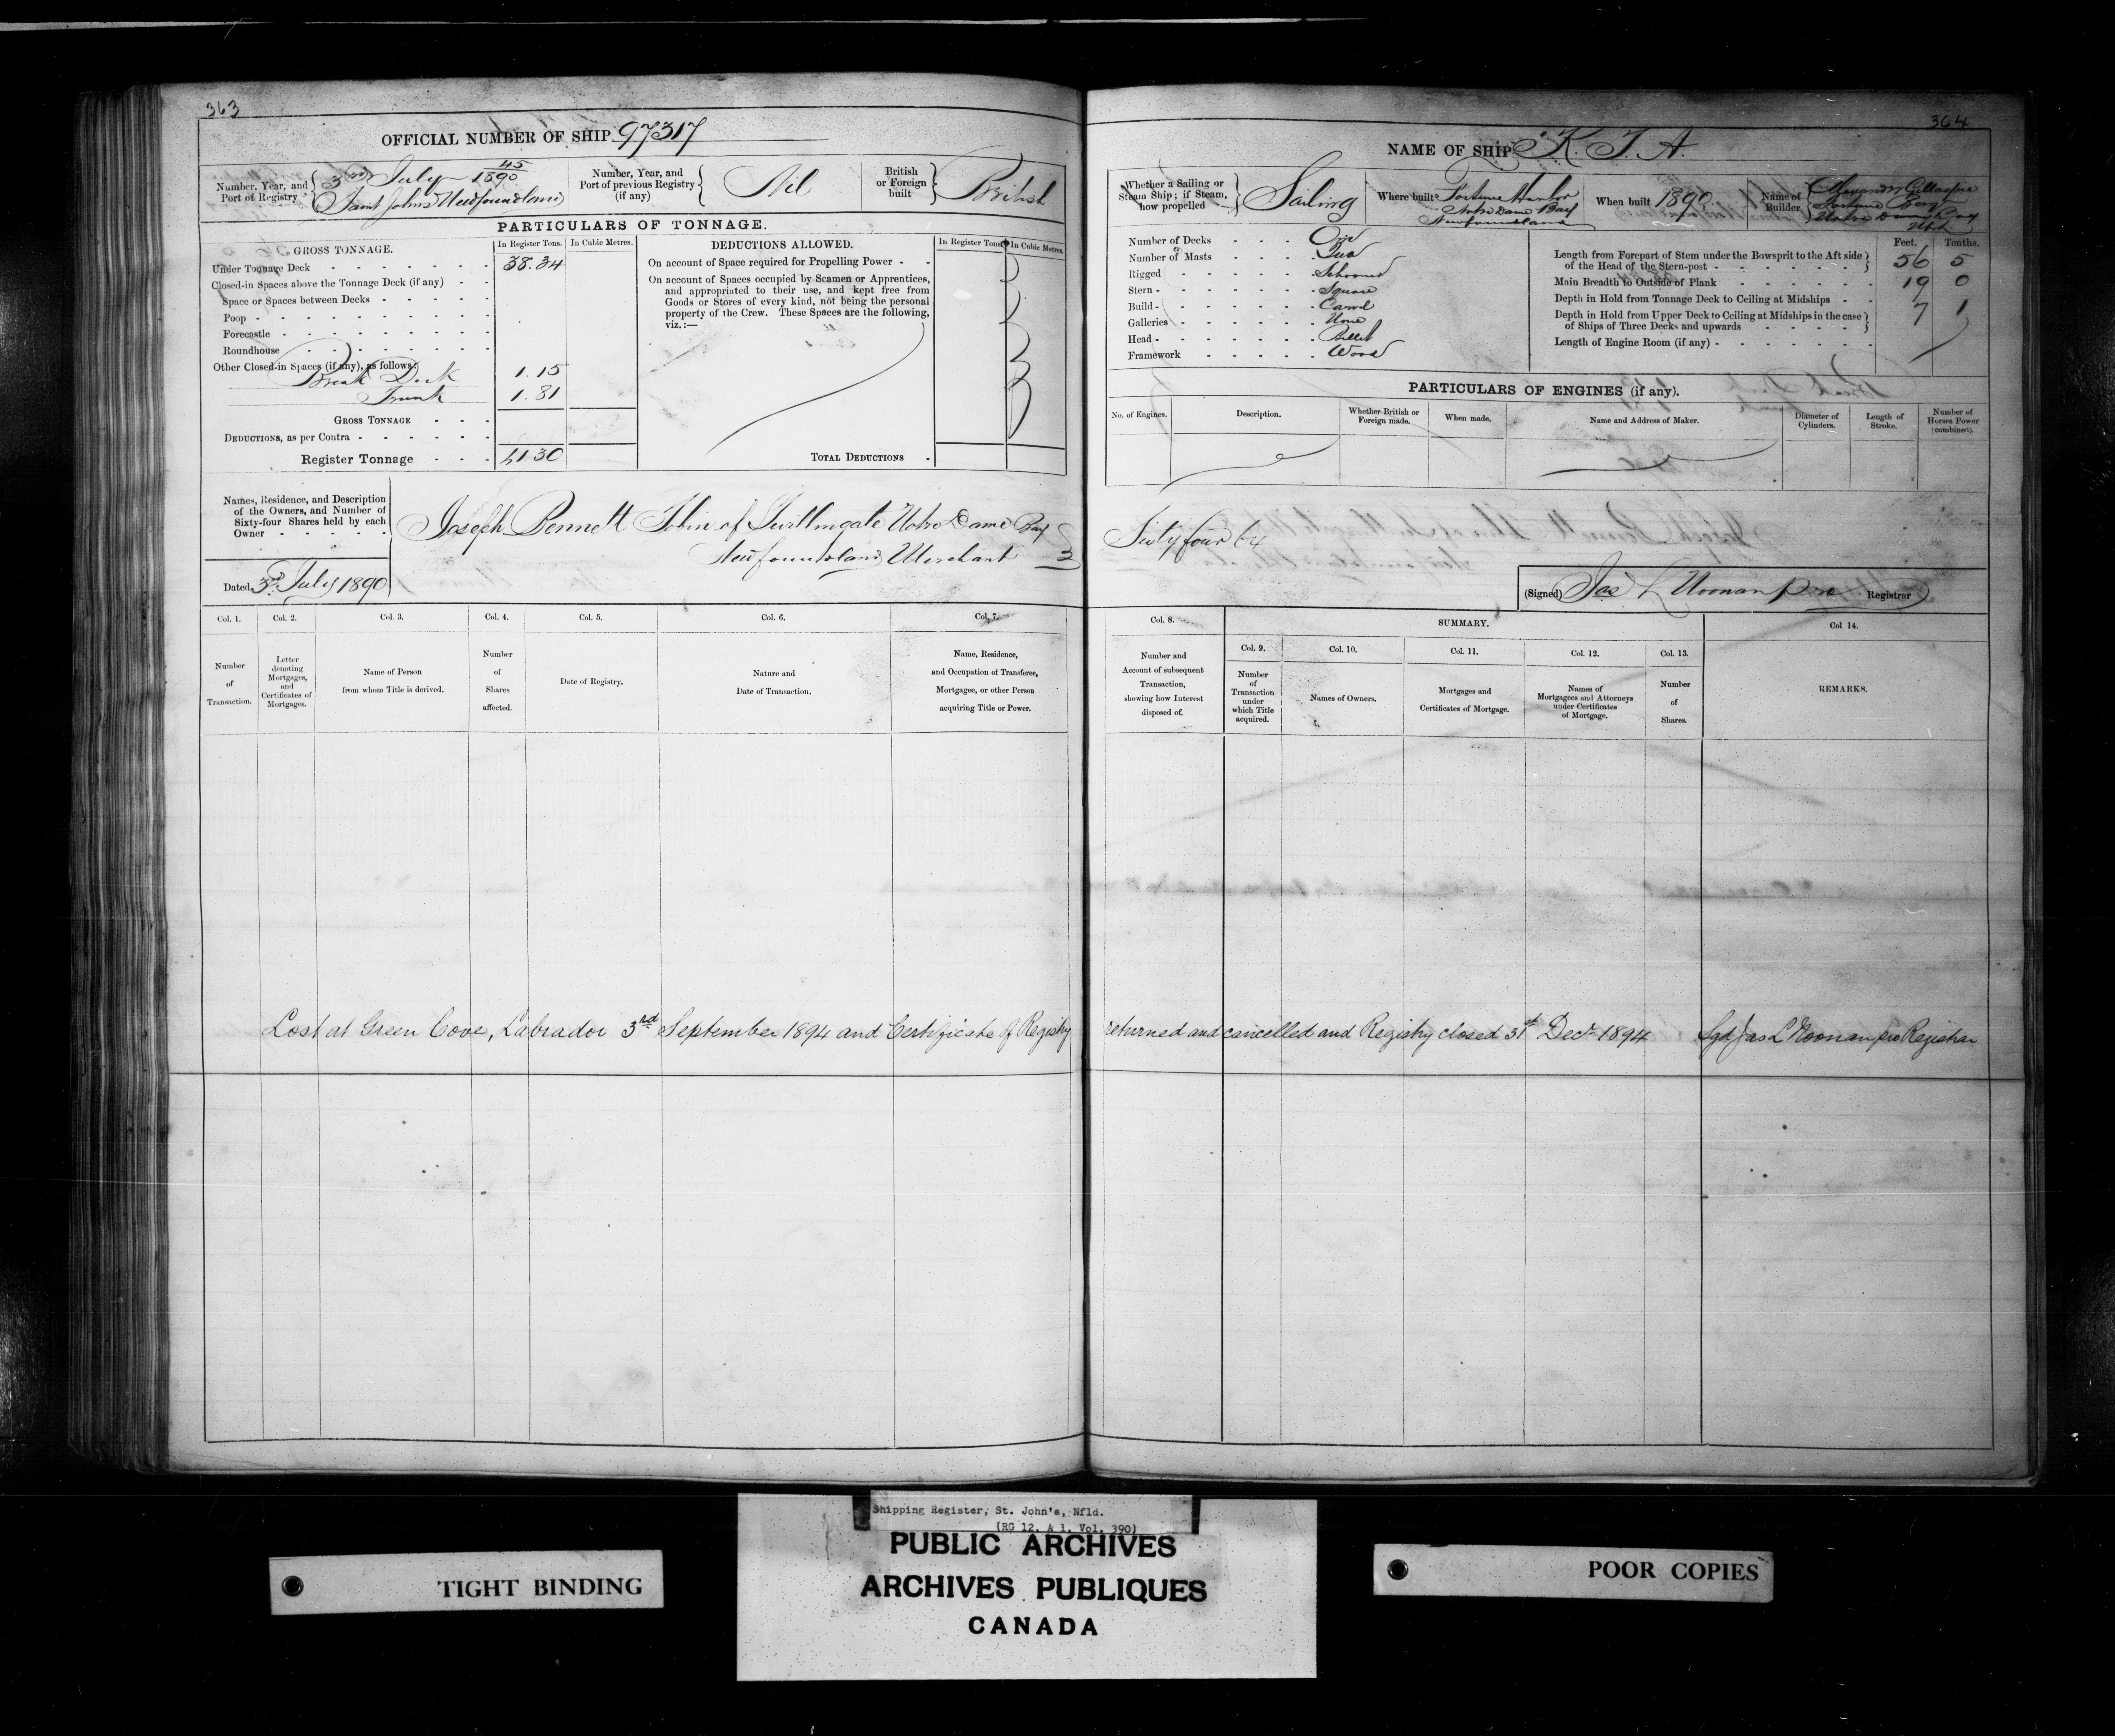 363
OFFICIAL NUMBER OF SHIP 97317
Number, Year, and Port of Registry
3rd July 45/1890
Saint Johns Newfoundland
Number, Year, and Port of previous Registry (if any)
Nil
British or Foreign built
British
PARTICULARS OF TONNAGE.
GROSS TONNAGE.
In Register Tons.
In Cubic Metres.
Under Tonnage Deck - 38.34
Closed-in Spaces above the Tonnage Deck (if any) - -
Space or Spaces between Decks - - - -
Poop - - - -
Forecastle - - - -
Roundhouse - - - -
Other Closed-in Spaces (if any), as follows:
Break Deck 1.15
Trunk 1.81
GROSS TONNAGE - - -
DEDUCTIONS, as per Contra - - - -
Register Tonnage - - - 41.30
DEDUCTIONS ALLOWED.
In Register Tons.
In Cubic Metres.
On account of Space required for Propelling Power - -
On account of Spaces occupied by Seamen or Apprentices,
and appropriated to their use, and kept free from
Goods or Stores of every kind, not being the personal
property of the Crew. These Spaces are the following,
viz.:—
TOTAL DEDUCTIONS -
Names, Residence, and Description
of the Owners, and Number of
Sixty-four Shares held by each
Owner - - - - -
Joseph Bennett Tobin of Twillingate Notre Dame Bay
Newfoundland Merchant
Dated 3rd July 1890
Col. 1.
Number of Transaction.
Col. 2.
Letter denoting Mortgages, and Certificates of Mortgages.
Col. 3.
Name of Person from whom Title is derived.
Col. 4.
Number of Shares affected.
Col. 5.
Date of Registry.
Col. 6.
Nature and Date of Transaction.
Col. 7.
Name, Residence, and Occupation of Transferee, Mortgagee, or other Person acquiring Title or Power.
364
NAME OF SHIP K. T. A.
Whether a Sailing or Steam Ship; if Steam, how propelled
Sailing
Where built
Fortune Harbor
Notre Dame Bay
Newfoundland
When built 1890
Name of Builder
Alexander Gillaspie
Fortune
Notre Dame Bay
Nfld
Number of Decks - - - One
Number of Masts - - - Two
Rigged - - - Schooner
Stern - - - Square
Build - - - Carvel
Galleries - - - None
Head - - - Billet
Framework - - - Wood
Feet. Tenths.
Length from Forepart of Stem under the Bowsprit to the Aft side
of the Head of the Stern-post - - - 56 5
Main Breadth to Outside of Plank - - - 19 0
Depth in Hold from Tonnage Deck to Ceiling at Midships - - 7 1
Depth in Hold from Upper Deck to Ceiling at Midships in the case
of Ships of Three Decks and upwards - - -
Length of Engine Room (if any) - - - -
PARTICULARS OF ENGINES (if any).
No. of Engines.
Description.
Whether British or Foreign made.
When made.
Name and Address of Maker.
Diameter of Cylinders.
Length of Stroke.
Number of Horses Power (combined).
Sixty four 64
(Signed) Jas L Noonan pro Registrar
Col. 8.
Number and Account of subsequent Transaction, showing how Interest disposed of.
SUMMARY.
Col. 9.
Number of Transaction under which Title acquired.
Col. 10.
Names of Owners.
Col. 11.
Mortgages and Certificates of Mortgage.
Col. 12.
Names of Mortgagees and Attorneys under Certificates of Mortgage.
Col. 13.
Number of Shares.
Col 14.
REMARKS.
Lost at Green Cove, Labrador 3rd September 1894 and Certificate of Registry returned and cancelled and Registry closed 31st Decr 1894 Sgd Jas L Noonan pro Registrar
Shipping Register, St. John's, Nfld.
(RG 12, A 1, Vol. 390)
PUBLIC ARCHIVES
ARCHIVES PUBLIQUES
CANADA
TIGHT BINDING
POOR COPIES